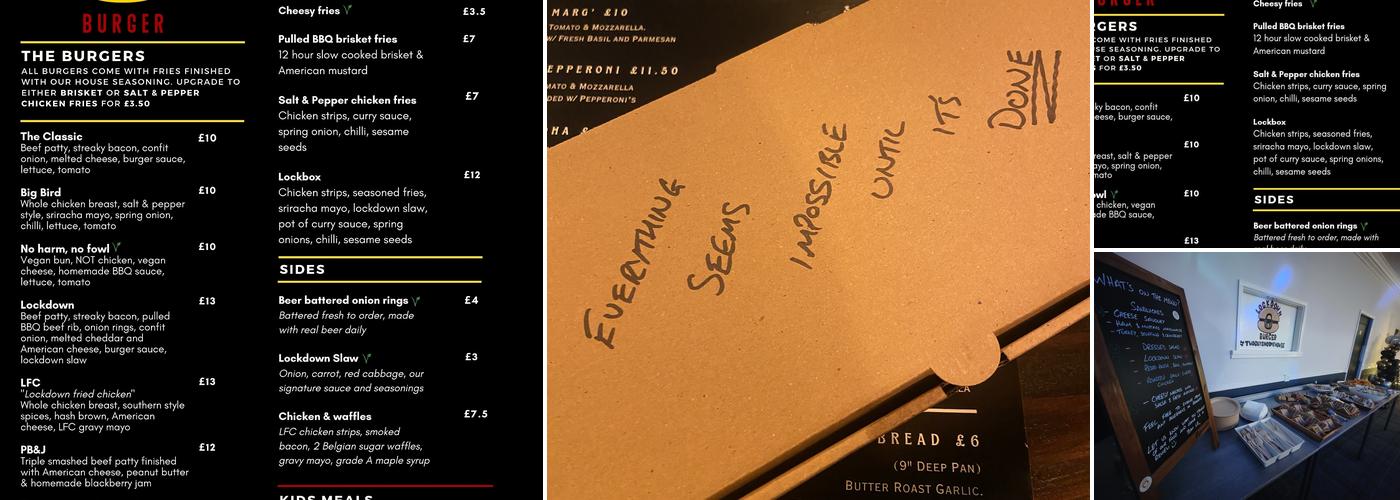 BURGER
THE BURGERS
ALL BURGERS COME WITH FRIES FINISHED
WITH OUR HOUSE SEASONING. UPGRADE TO
EITHER BRISKET OR SALT & PEPPER
CHICKEN FRIES FOR £3.50
The Classic £10
Beef patty, streaky bacon, confit
onion, melted cheese, burger sauce,
lettuce, tomato
Big Bird £10
Whole chicken breast, salt & pepper
style, sriracha mayo, spring onion,
chilli, lettuce, tomato
No harm, no fowl £10
Vegan bun, NOT chicken, vegan
cheese, homemade BBQ sauce,
lettuce, tomato
Lockdown £13
Beef patty, streaky bacon, pulled
BBQ beef rib, onion rings, confit
onion, melted cheddar and
American cheese, burger sauce,
lockdown slaw
LFC £13
"Lockdown fried chicken"
Whole chicken breast, southern style
spices, hash brown, American
cheese, LFC gravy mayo
PB&J £12
Triple smashed beef patty finished
with American cheese, peanut butter
& homemade blackberry jam
Cheesy fries £3.5
Pulled BBQ brisket fries £7
12 hour slow cooked brisket &
American mustard
Salt & Pepper chicken fries £7
Chicken strips, curry sauce,
spring onion, chilli, sesame
seeds
Lockbox £12
Chicken strips, seasoned fries,
sriracha mayo, lockdown slaw,
pot of curry sauce, spring
onions, chilli, sesame seeds
SIDES
Beer battered onion rings £4
Battered fresh to order, made
with real beer daily
Lockdown Slaw £3
Onion, carrot, red cabbage, our
signature sauce and seasonings
Chicken & waffles £7.5
LFC chicken strips, smoked
bacon, 2 Belgian sugar waffles,
gravy mayo, grade A maple syrup
KIDS MEALS
MARG' £10
TOMATO & MOZZARELLA.
W/ FRESH BASIL AND PARMESAN
EPPERONI £11.50
MATO & MOZZARELLA
DED W/ PEPPERONI'S
EVERYTHING
SEEMS
IMPOSSIBLE
UNTIL
ITS
DONE
BREAD £6
(9" DEEP PAN)
BUTTER ROAST GARLIC.
GERS
USE SEASONING. UPGRADE TO
T OR SALT & PEPPER
FOR £3.50
£10
ky bacon, confit
d cheese, burger sauce,
£10
reast, salt & pepper
ayo, spring onion,
mato
owl £10
chicken, vegan
ade BBQ sauce,
£13
Cheesy fries
Pulled BBQ brisket fries
12 hour slow cooked brisket &
American mustard
Salt & Pepper chicken fries
Chicken strips, curry sauce, spring
onion, chilli, sesame seeds
Lockbox
Chicken strips, seasoned fries,
sriracha mayo, lockdown slaw,
pot of curry sauce, spring onions,
chilli, sesame seeds
SIDES
Beer battered onion rings
Battered fresh to order, made with
WHAT'S ON THE MENU?
SANDWICHES
- CHEESE SAVOURY
LOCKDOWN
BURGER